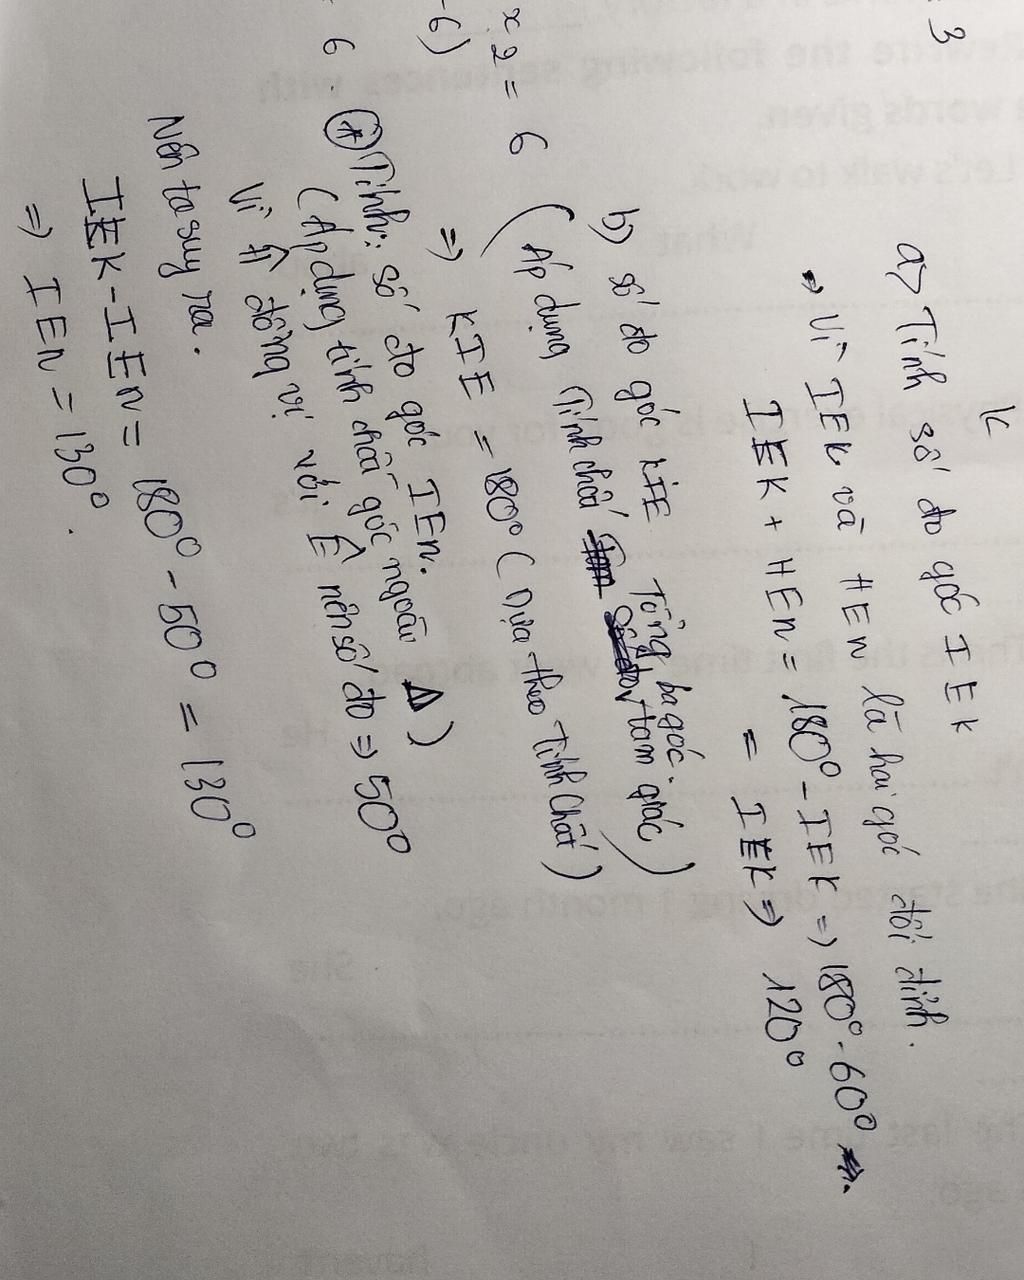 3
K
a) Tính số đo góc IEK
Vì IEK và HEn là hai góc đối đỉnh.
IEK + HEn = 180° - IEK => 180° - 60°
= IEK => 120°
b) số đo góc KIE Tổng ba góc.
(Áp dụng Tính chất tam giác)
=> KIE = 180° (Dựa theo Tính Chất)
x 2 = 6
-6)
6.
* Tính: số đo góc IEn.
(Áp dụng tính chất góc ngoài Δ)
Vì Ĥ đồng vị với Ê nên số đo => 50°
Nên ta suy ra.
IEK - IEn = 180° - 50° = 130°
=> IEn = 130°.
Rewrite the following sentences with
words given.
Let's walk to work.
What
This is the first time
He
She started driving 1 month ago.
She
The last time I saw my uncle
ago